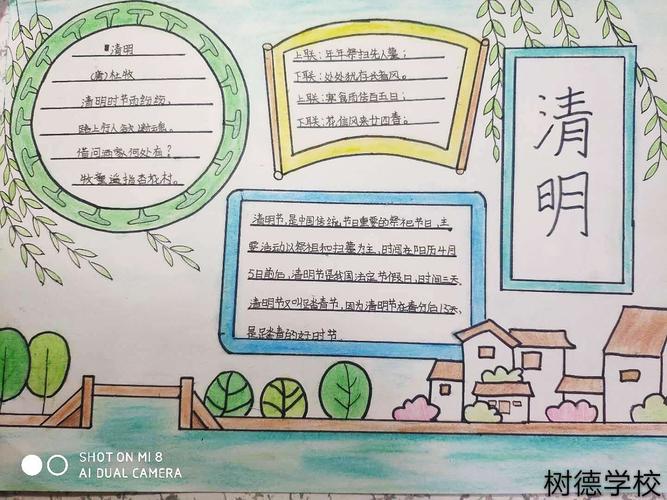 清明
(唐)杜牧
清明时节雨纷纷,
路上行人欲断魂。
借问酒家何处有?
牧童遥指杏花村。
上联:年年祭扫先人墓;
下联:处处犹存长者风。
上联:寒食雨传百五日;
下联:花信风来廿四春。
清明
清明节,是中国传统节日重要的祭祀节日,主
要活动以祭祖和扫墓为主,时间在阳历4月
5日前后,清明节是我国法定节假日,时间三天、
清明节又叫踏青节,因为清明节在春分后15天、
是踏青的好时节
SHOT ON MI 8
AI DUAL CAMERA
树德学校